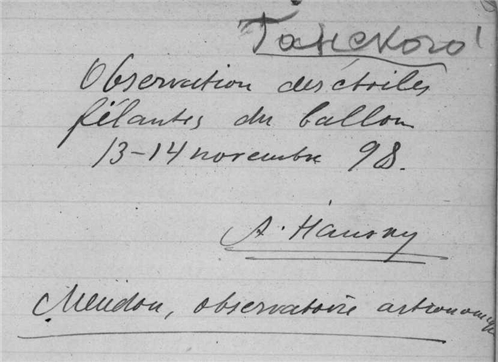 Ганского
Observation des étoiles
filantes du ballon
13-14 novembre 98.
A. Hansky
Meudon, observatoire astronomique